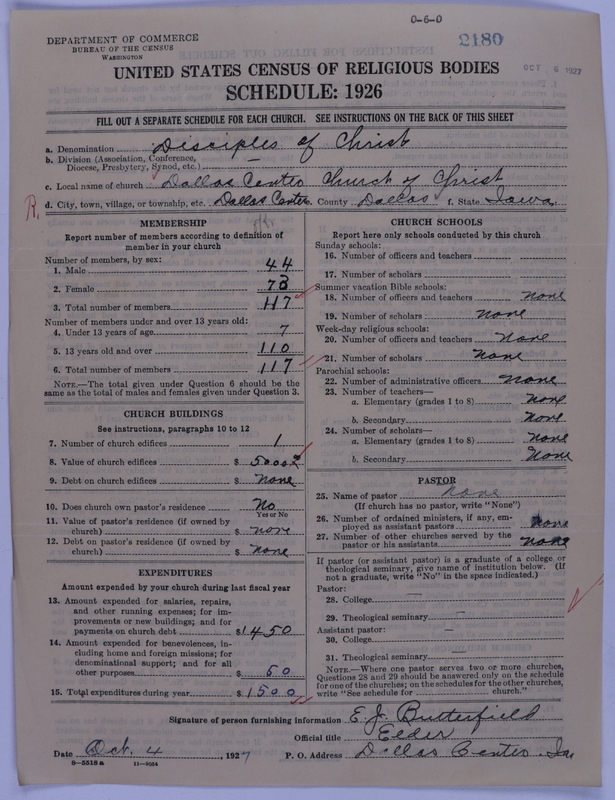 0-6-0
2180
DEPARTMENT OF COMMERCE
BUREAU OF THE CENSUS
WASHINGTON
OCT 6 1927
UNITED STATES CENSUS OF RELIGIOUS BODIES
SCHEDULE: 1926
FILL OUT A SEPARATE SCHEDULE FOR EACH CHURCH. SEE INSTRUCTIONS ON THE BACK OF THIS SHEET
a. Denomination Disciples of Christ
b. Division (Association, Conference,
Diocese, Presbytery, Synod, etc.) —
c. Local name of church Dallas Center Church of Christ
R. d. City, town, village, or township, etc. Dallas Center e. County Dallas f. State Iowa
MEMBERSHIP
Report number of members according to definition of
member in your church
Number of members, by sex:
1. Male 44
2. Female 73
3. Total number of members 117
Number of members under and over 13 years old:
4. Under 13 years of age 7
5. 13 years old and over 110
6. Total number of members 117
NOTE.—The total given under Question 6 should be the
same as the total of males and females given under Question 3.
CHURCH BUILDINGS
See instructions, paragraphs 10 to 12
7. Number of church edifices 1
8. Value of church edifices $ 5000
9. Debt on church edifices $ none
10. Does church own pastor's residence No
Yes or No
11. Value of pastor's residence (if owned by
church) $ none
12. Debt on pastor's residence (if owned by
church) $ none
EXPENDITURES
Amount expended by your church during last fiscal year
13. Amount expended for salaries, repairs,
and other running expenses; for im-
provements or new buildings; and for
payments on church debt $1450
14. Amount expended for benevolences, in-
cluding home and foreign missions; for
denominational support; and for all
other purposes $ 50
15. Total expenditures during year $1500
CHURCH SCHOOLS
Report here only schools conducted by this church
Sunday schools:
16. Number of officers and teachers
17. Number of scholars
Summer vacation Bible schools:
18. Number of officers and teachers none
19. Number of scholars none
Week-day religious schools:
20. Number of officers and teachers none
21. Number of scholars none
Parochial schools:
22. Number of administrative officers none
23. Number of teachers—
a. Elementary (grades 1 to 8) none
b. Secondary none
24. Number of scholars—
a. Elementary (grades 1 to 8) none
b. Secondary none
PASTOR
25. Name of pastor none
(If church has no pastor, write "None")
26. Number of ordained ministers, if any, em-
ployed as assistant pastors none
27. Number of other churches served by the
pastor or his assistants none
If pastor (or assistant pastor) is a graduate of a college or
theological seminary, give name of institution below. (If
not a graduate, write "No" in the space indicated.)
Pastor:
28. College —
29. Theological seminary —
Assistant pastor:
30. College —
31. Theological seminary —
NOTE.—Where one pastor serves two or more churches,
Questions 28 and 29 should be answered only on the schedule
for one of the churches; on the schedules for the other churches,
write "See schedule for church."
Signature of person furnishing information E. J. Butterfield
Official title Elder
Date Oct. 4, 1927 P. O. Address Dallas Center, Ia
8-5518a 11-9034